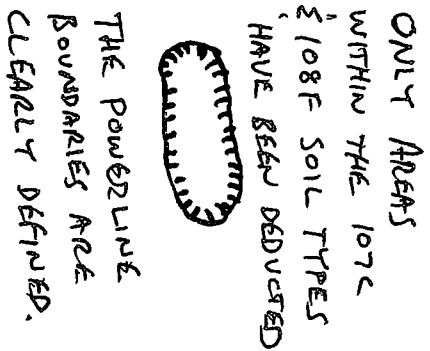 ONLY AREAS
WITHIN THE 107C
& 108F SOIL TYPES
HAVE BEEN DEDUCTED
THE POWERLINE
BOUNDARIES ARE
CLEARLY DEFINED.